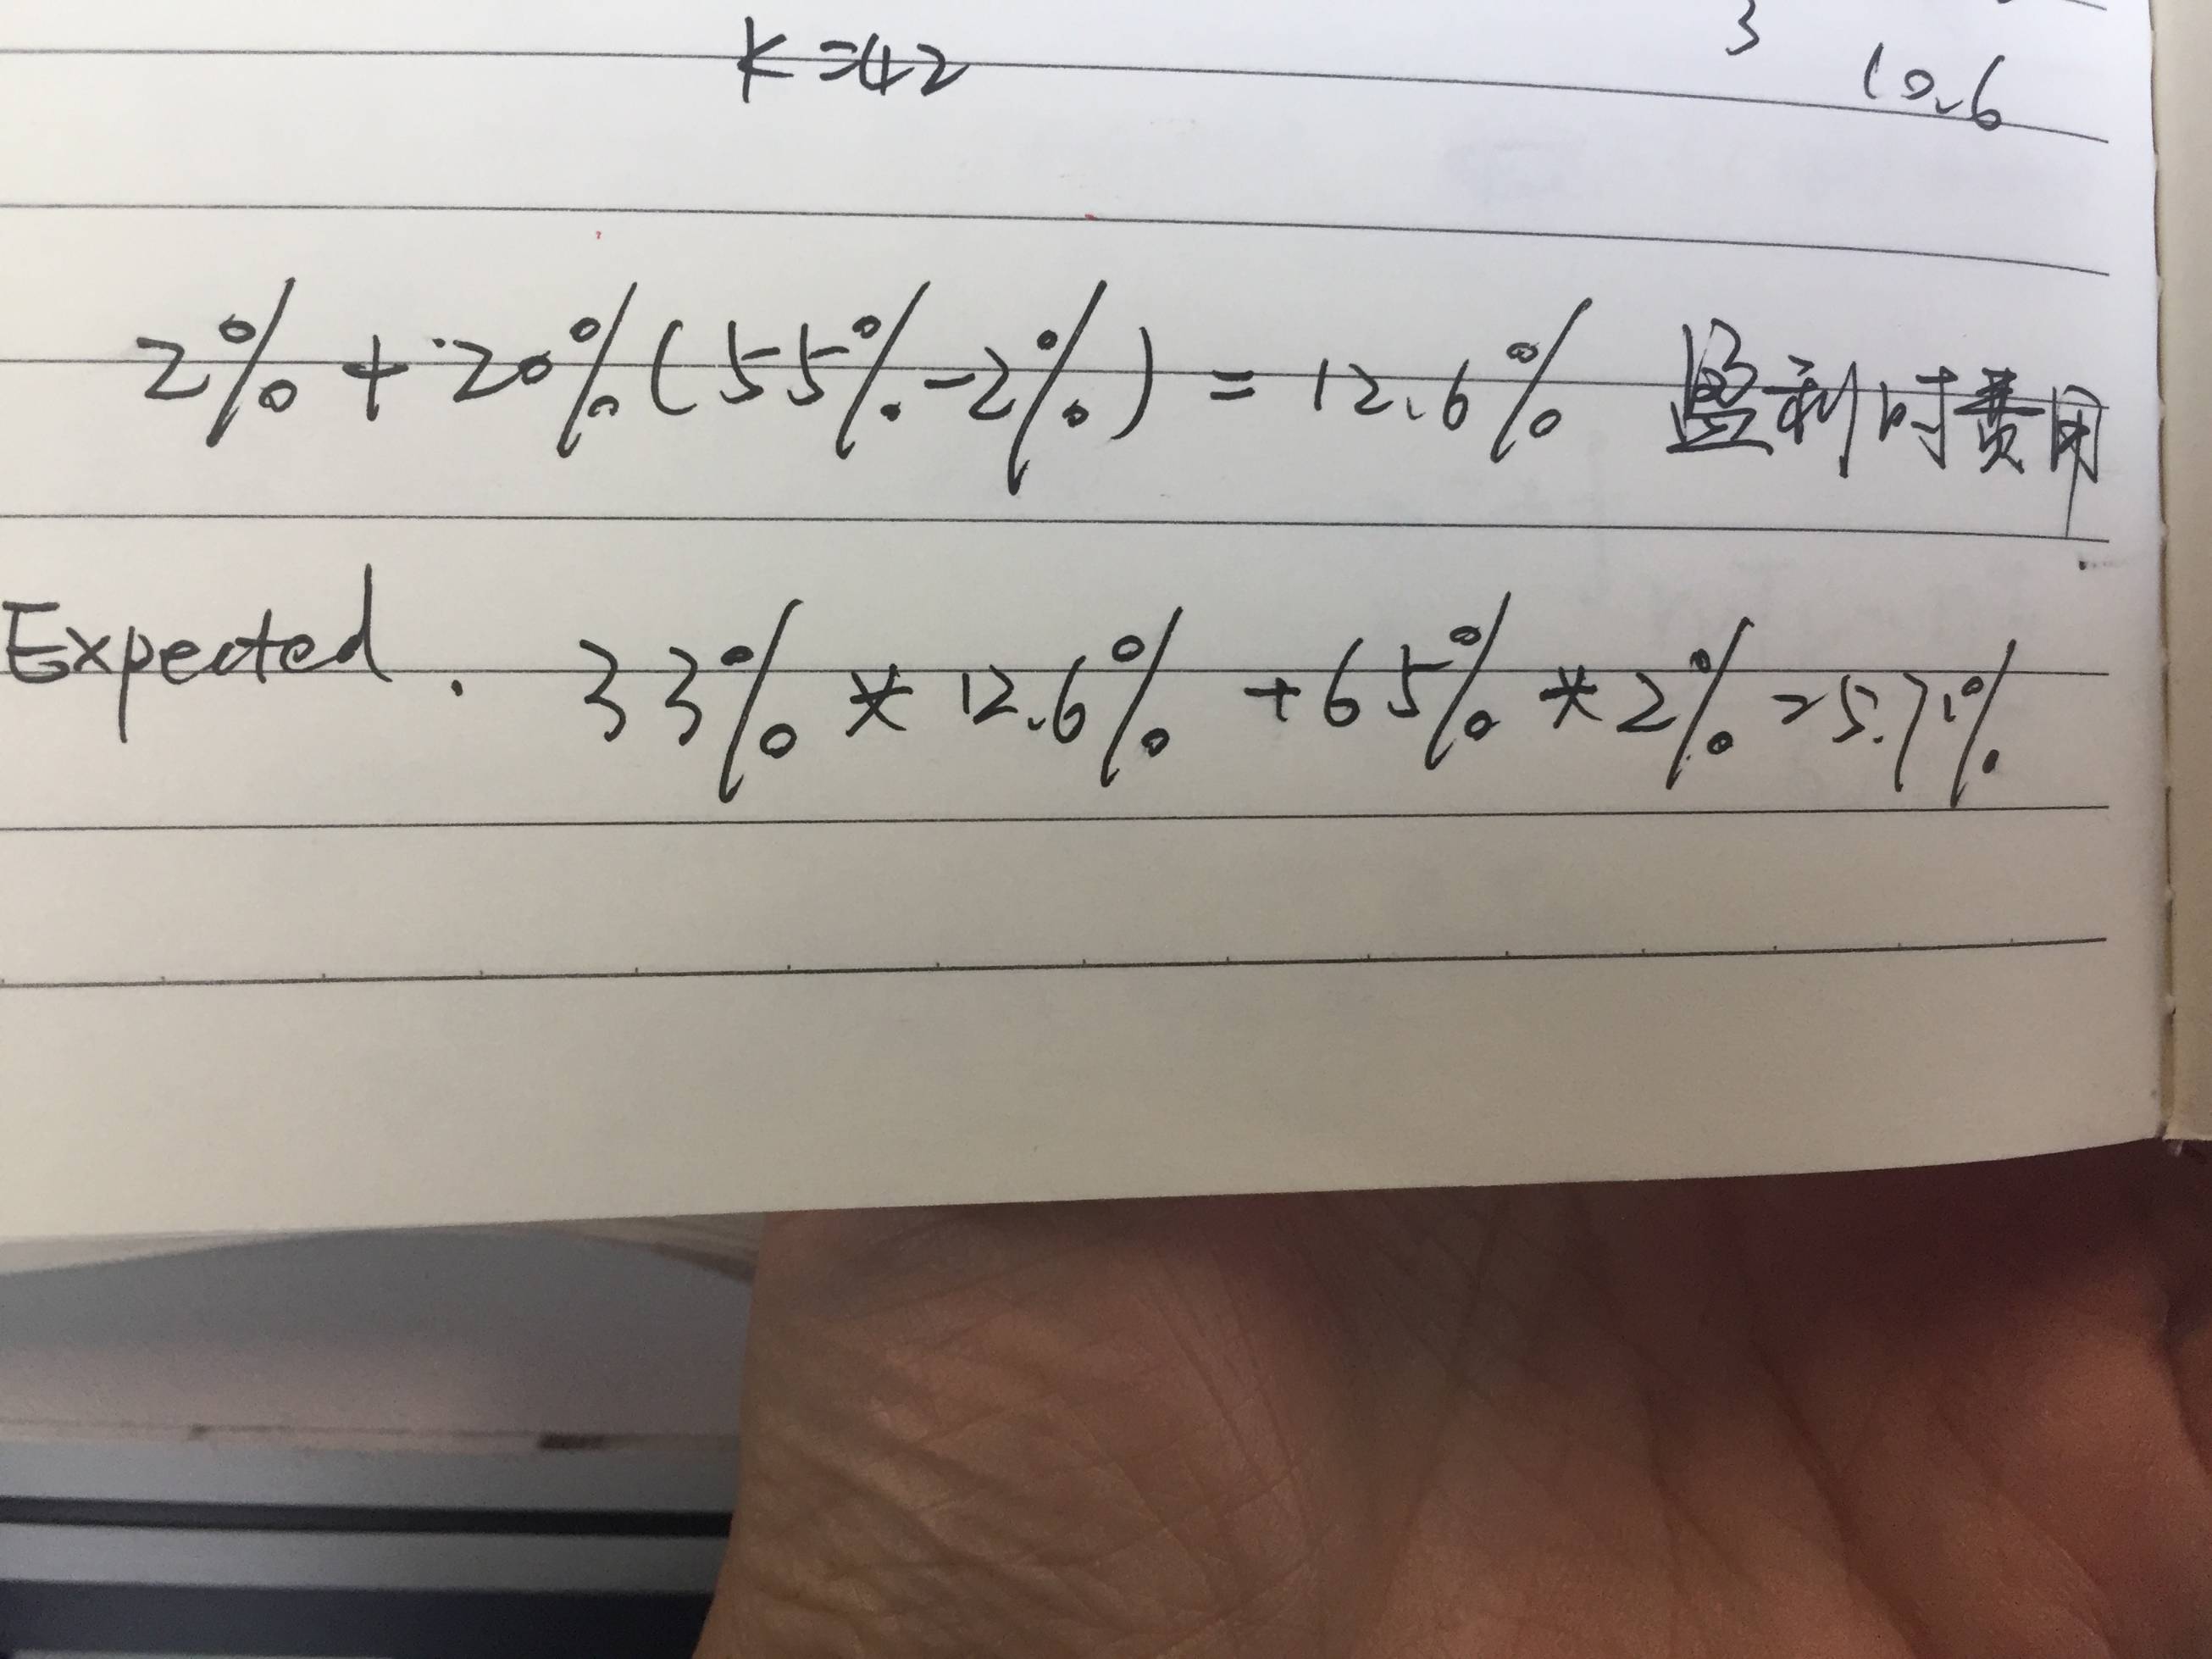 3
k=42
10.6
2% + 20% (55% - 2%) = 12.6% 盈利时费用
Expected. 33% * 12.6% + 65% * 2% = 5.7%